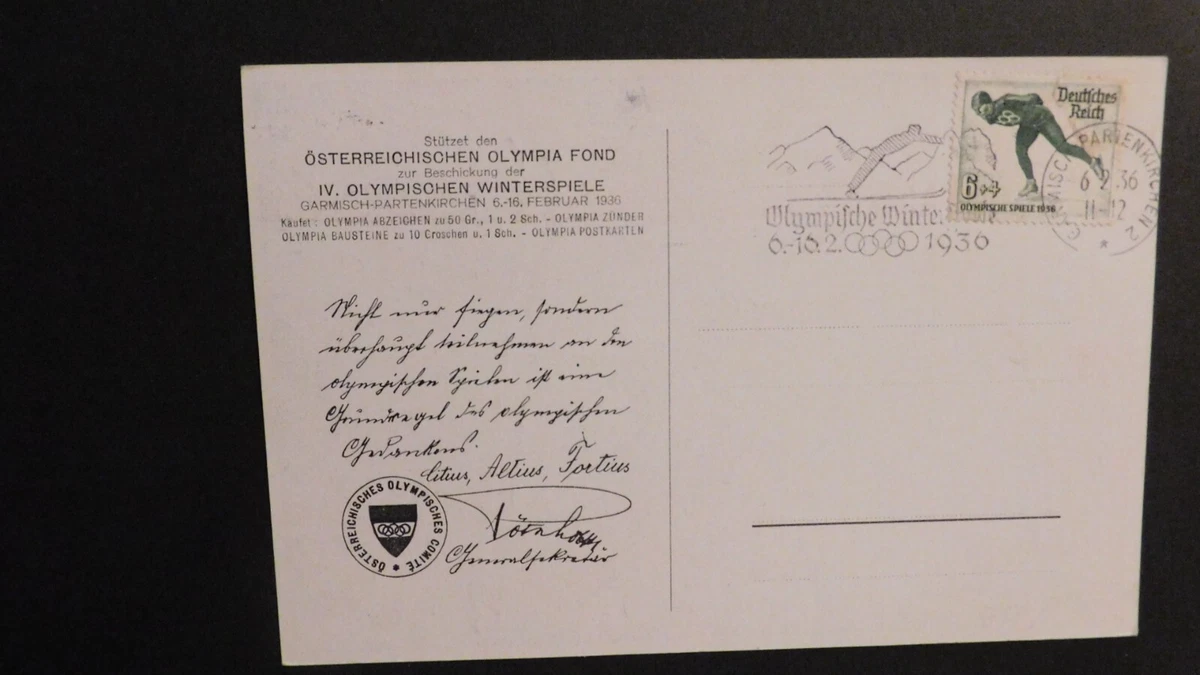 Stützet den
ÖSTERREICHISCHEN OLYMPIA FOND
zur Beschickung der
IV. OLYMPISCHEN WINTERSPIELE
GARMISCH-PARTENKIRCHEN 6.-16. FEBRUAR 1936
Kaufet: OLYMPIA ABZEICHEN zu 50 Gr., 1 u. 2 Sch. - OLYMPIA ZÜNDER
OLYMPIA BAUSTEINE zu 10 Groschen u. 1 Sch. - OLYMPIA POSTKARTEN
Nicht nur siegen, sondern
überhaupt teilnehmen an den
olympischen Spielen ist eine
Grundregel des olympischen
Gedankens.
Citius, Altius, Fortius
Generalsekretär
ÖSTERREICHISCHES OLYMPISCHES COMITÉ
Deutsches
Reich
6+4
OLYMPISCHE SPIELE 1936
Olympische Winterspiele
6.-16.2. 1936
GARMISCH-PARTENKIRCHEN 2
6 2.36
11-12